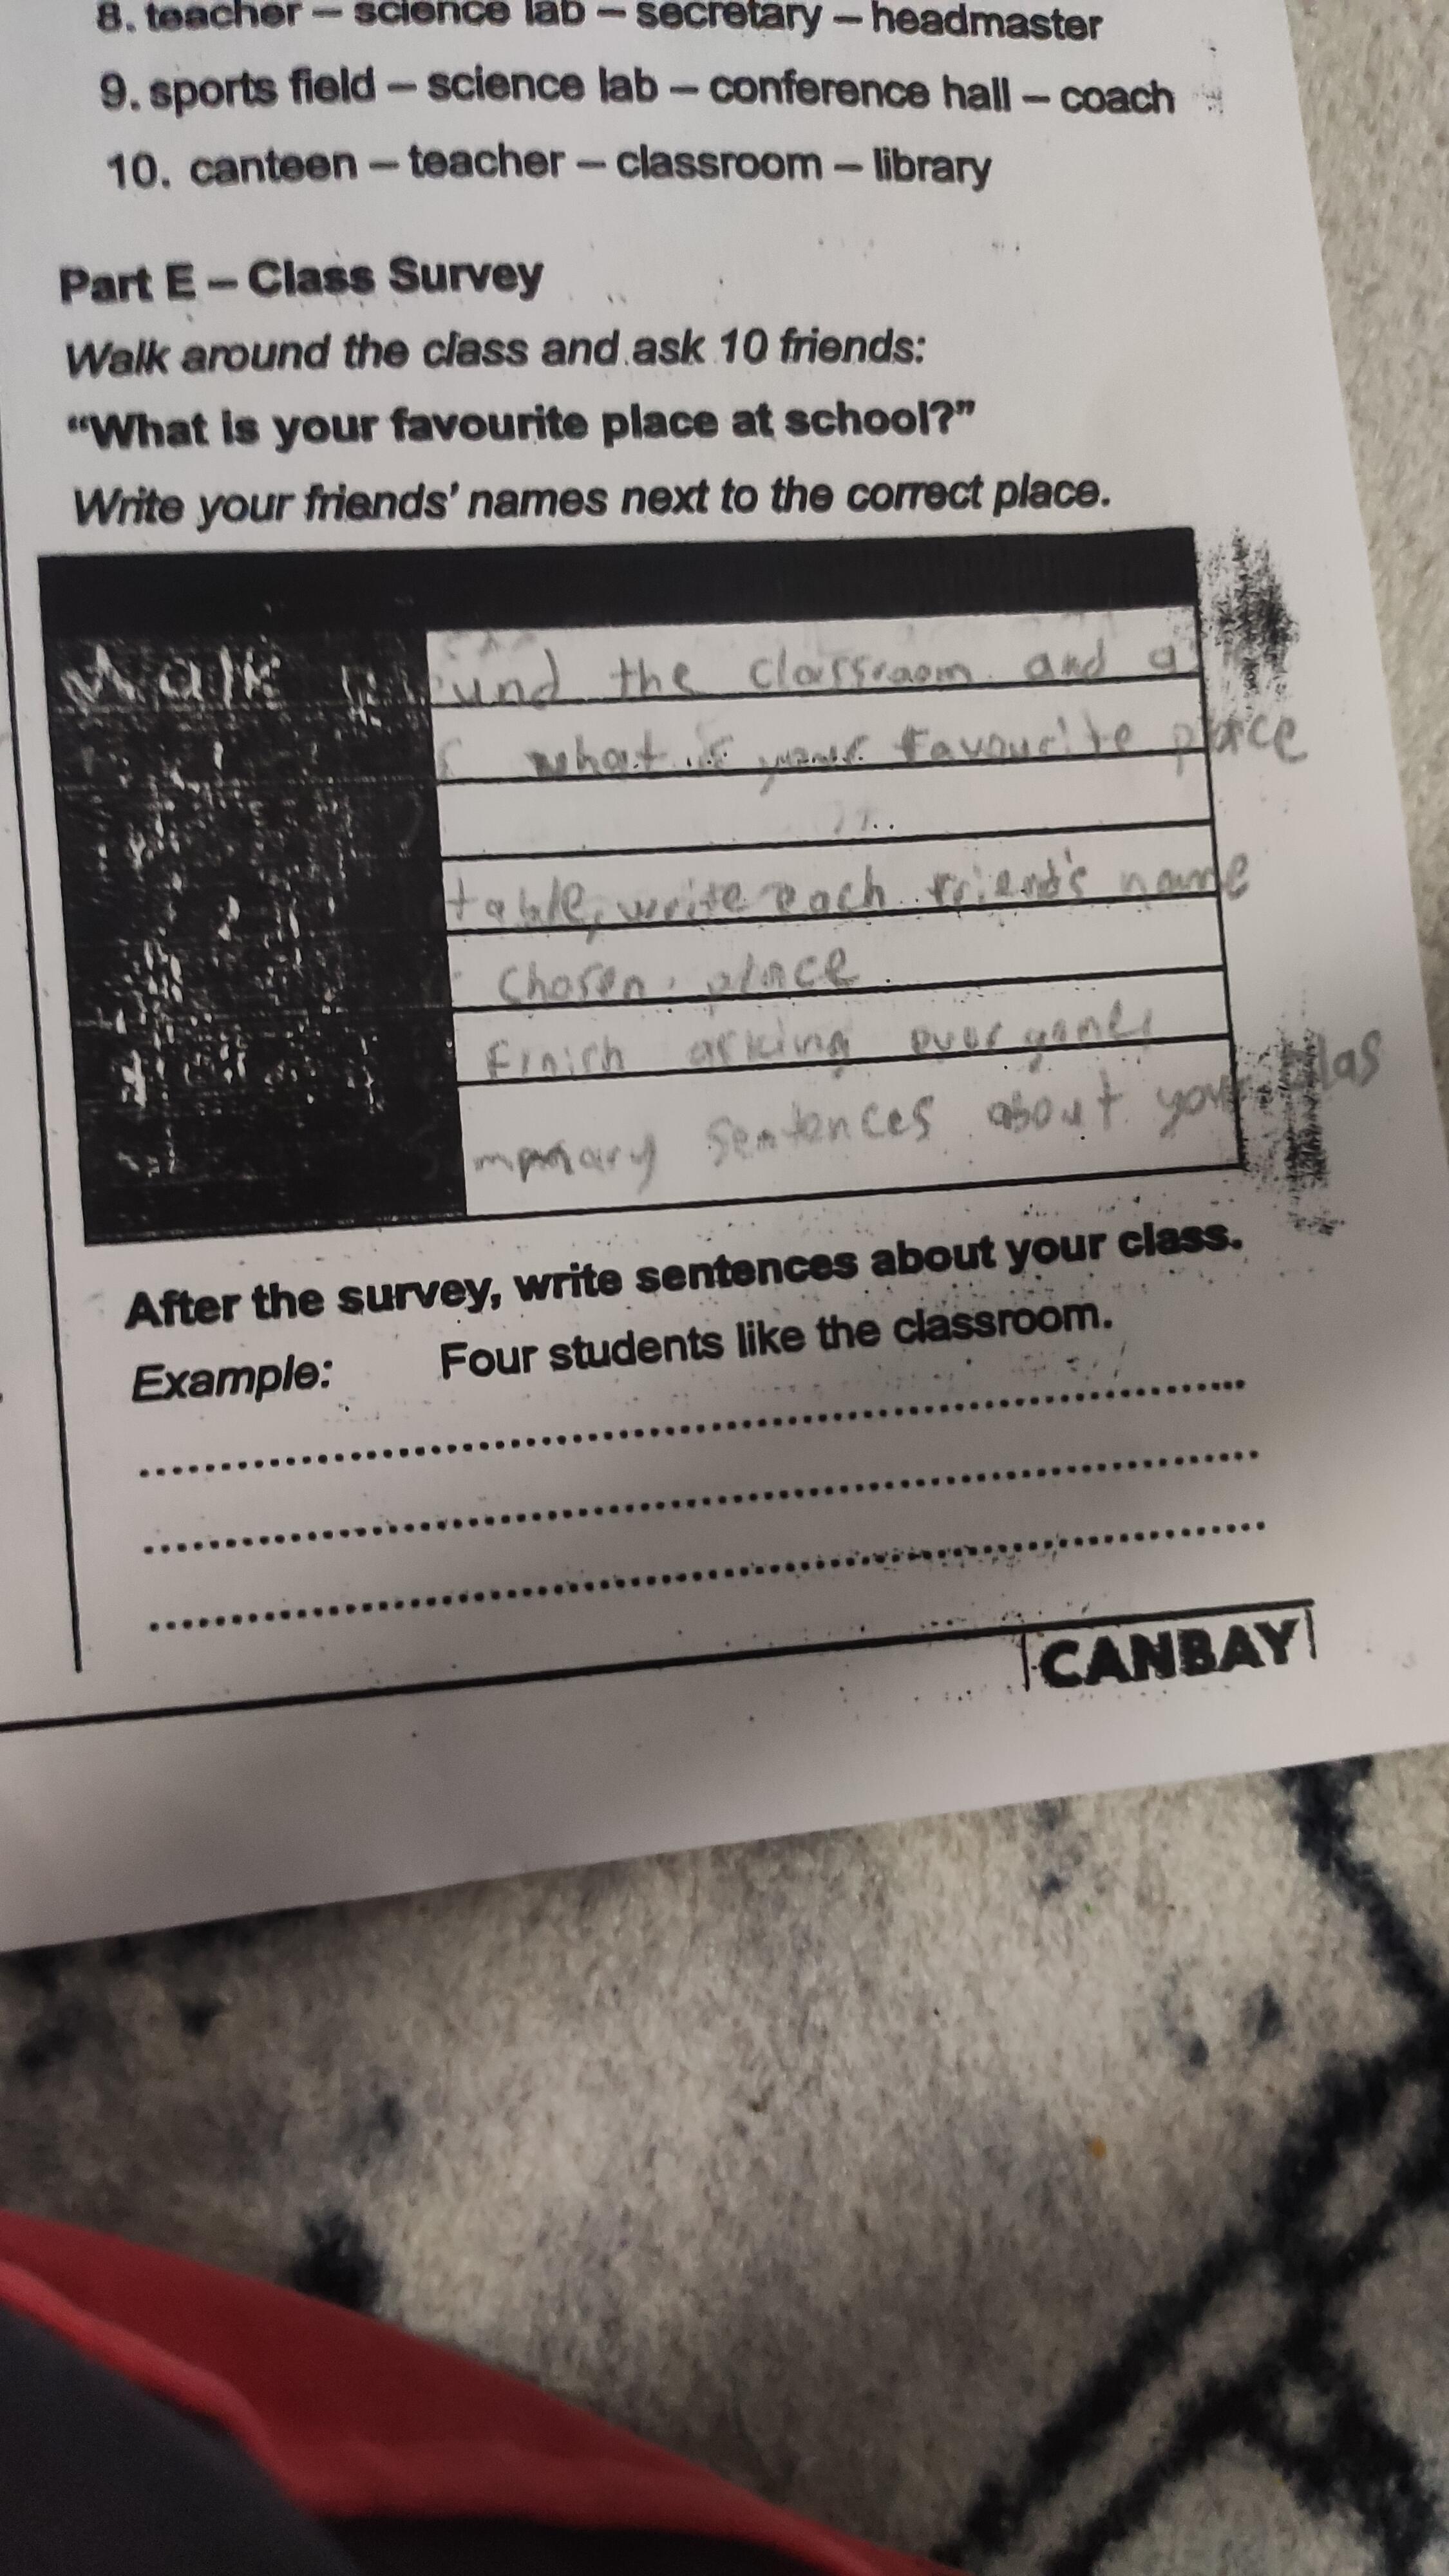 8. teacher – science lab – secretary – headmaster
9. sports field – science lab – conference hall – coach
10. canteen – teacher – classroom – library
Part E – Class Survey
Walk around the class and ask 10 friends:
“What is your favourite place at school?”
Write your friends’ names next to the correct place.
Walk und the classroom and a
what is your favourite place
table, write each friend's name
chosen place
Finish asking
mmary sentences about your clas
After the survey, write sentences about your class.
Example: Four students like the classroom.
CANBAY